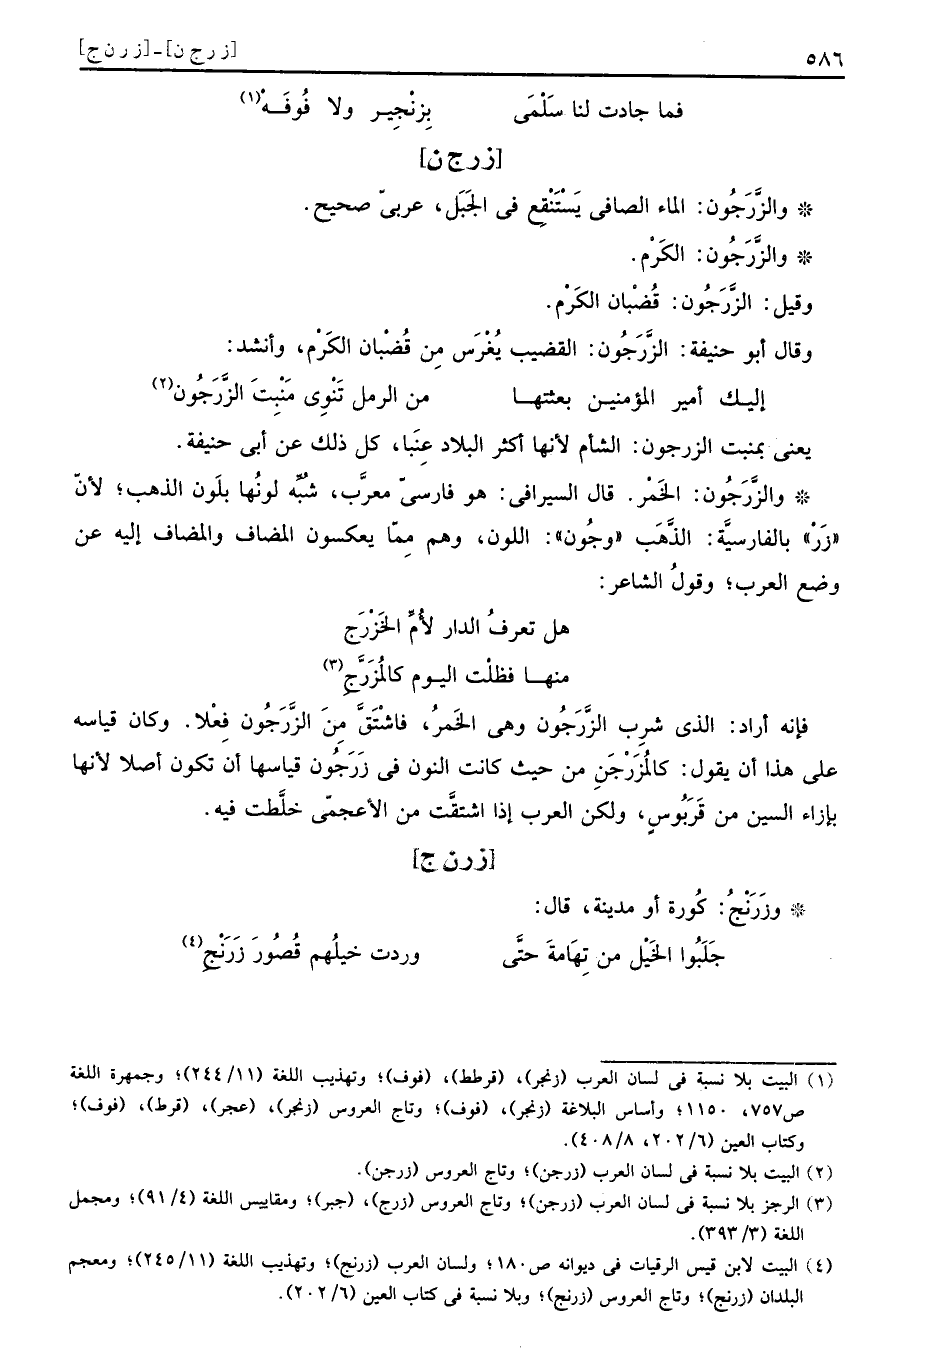 ٥٨٦ [زرجن]-[زرنج]
فما جادت لنا سَلْمَى بِزنْجِيـر ولا فُوفَـهْ(١)
[زرجن]
* والزَّرَجُون: الماء الصافى يَسْتَنْقِع فى الجَبَل، عربىّ صحيح.
* والزَّرَجُون: الكَرْم.
وقيل: الزَّرَجُون: قُضْبان الكَرْم.
وقال أبو حنيفة: الزَّرَجُون: القضيب يُغْرَس مِن قُضْبان الكَرْم، وأنشد:
إليـك أمير المؤمنيـن بعثتهـا من الرمل تَنْوِى مَنْبِتَ الزَّرَجُون(٢)
يعنى بمنبت الزرجون: الشأم لأنها أكثر البلاد عِنَبا، كل ذلك عن أبى حنيفة.
* والزَّرَجُون: الخَمْر. قال السيرافى: هو فارسىّ معرَّب، شُبِّه لونُها بلَون الذهب؛ لأنّ
«زَرْ» بالفارسيَّة: الذَّهَب «وجُون»: اللون، وهم مِمّا يعكسون المضاف والمضاف إليه عن
وضع العرب؛ وقولُ الشاعر:
هل تعرفُ الدار لأُمِّ الخَزْرَج
منهـا فظلْت اليـوم كالمُزَرَّجِ(٣)
فإنه أراد: الذى شرِب الزَّرَجُون وهى الخَمرُ، فاشْتَقَّ مِنَ الزَّرَجُون فِعْلا. وكان قياسه
على هذا أن يقول: كالمُزَرْجَنِ من حيث كانت النون فى زَرَجُون قياسها أن تكون أصلا لأنها
بإزاء السين من قَرَبُوسٍ، ولكن العرب إذا اشتقَّت من الأعجمّى خلَّطت فيه.
[زرنج]
* وزَرَنْجُ: كُورة أو مدينة، قال:
جَلَبُوا الخَيْل من تِهَامةَ حتَّى وردت خيلُهم قُصُورَ زَرَنْجِ(٤)
(١) البيت بلا نسبة فى لسان العرب (زنجر)، (قرطط)، (فوف)؛ وتهذيب اللغة (٢٤٤/١١)؛ وجمهرة اللغة
ص٧٥٧، ١١٥٠؛ وأساس البلاغة (زنجر)، (فوف)؛ وتاج العروس (زنجر)، (عجر)، (قرط)، (فوف)؛
وكتاب العين (٢٠٢/٦، ٤٠٨/٨).
(٢) البيت بلا نسبة فى لسان العرب (زرجن)؛ وتاج العروس (زرجن).
(٣) الرجز بلا نسبة فى لسان العرب (زرجن)؛ وتاج العروس (زرج)، (جبر)؛ ومقاييس اللغة (٩١/٤)؛ ومجمل
اللغة (٣٩٣/٣).
(٤) البيت لابن قيس الرقيات فى ديوانه ص١٨٠؛ ولسان العرب (زرنج)؛ وتهذيب اللغة (٢٤٥/١١)؛ ومعجم
البلدان (زرنج)؛ وتاج العروس (زرنج)؛ وبلا نسبة فى كتاب العين (٢٠٢/٦).